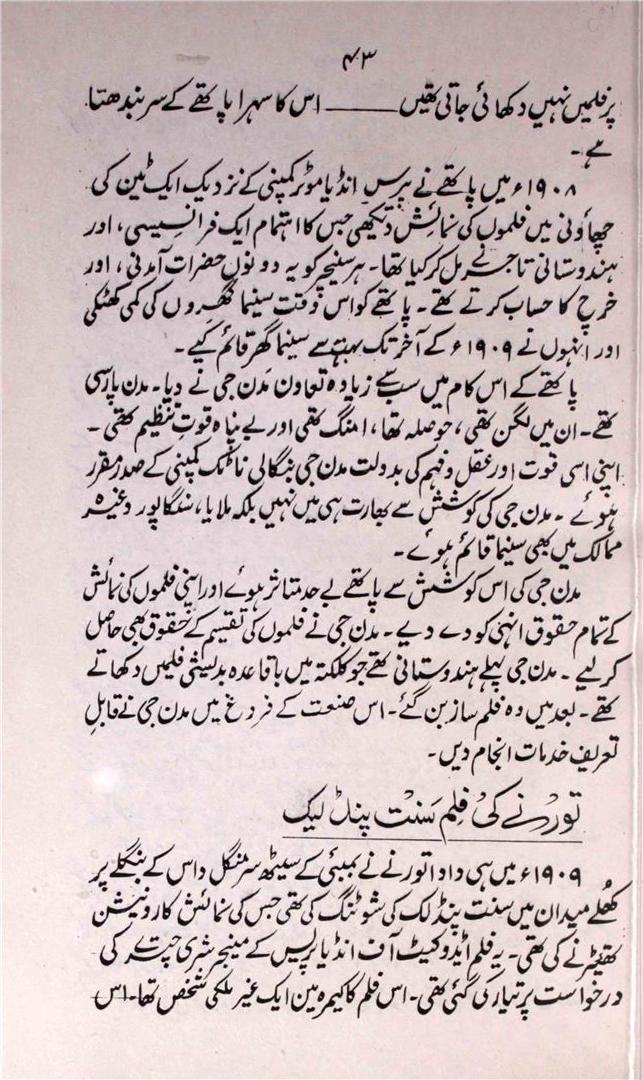 ۴۳
پر فلمیں نہیں دکھائی جاتی تھیں ــــــــ اس کا سہرا پاتھے کے سر بندھتا
ہے۔
۱۹۰۸ء میں پاتھے نے پرس انڈیا موٹر کمپنی کے نزدیک ایک ٹین کی
چھاؤنی میں فلموں کی نمائش دیکھی جس کا اہتمام ایک فرانسیسی، اور
ہندوستانی تاجر نے مل کر کیا تھا۔ ہر سنیچر کو یہ دونوں حضرات آمدنی، اور
خرچ کا حساب کرتے تھے۔ پاتھے کو اس وقت سنیما گھروں کی کمی کھٹکی
اور انہوں نے ۱۹۰۹ء کے آخر تک بہت سے سنیما گھر قائم کیے۔
پاتھے کے اس کام میں سب سے زیادہ تعاون مدن جی نے دیا۔ مدن پارسی
تھے۔ ان میں لگن تھی، حوصلہ تھا، امنگ تھی اور بے پناہ قوتِ تنظیم تھی۔
اپنی اسی قوت اور عقل و فہم کی بدولت مدن جی بنگالی ناٹک کمپنی کے صدر مقرر
ہوئے۔ مدن جی کی کوشش سے بھارت ہی میں نہیں بلکہ ملایا، سنگاپور وغیرہ
ممالک میں بھی سنیما قائم ہوئے۔
مدن جی کی اس کوشش سے پاتھے بے حد متاثر ہوئے اور اپنی فلموں کی نمائش
کے تمام حقوق انہی کو دے دیے۔ مدن جی نے فلموں کی تقسیم کے حقوق بھی حاصل
کر لیے۔ مدن جی پہلے ہندوستانی تھے جو کلکتہ میں باقاعدہ بدیشی فلمیں دکھاتے
تھے۔ بعد میں وہ فلم ساز بن گئے۔ اس صنعت کے فروغ میں مدن جی نے قابلِ
تعریف خدمات انجام دیں۔
تورنے کی فلم سنت پنڈلیک
۱۹۰۹ء میں ہی دادا تورنے نے بمبئی کے سیٹھ سر منگل داس کے بنگلے پر
کھُلے میدان میں سنت پنڈلک کی شوٹنگ کی تھی جس کی نمائش کارونیشن
تھیٹر نے کی تھی۔ یہ فلم ایڈوکیٹ آف انڈیا پریس کے منیجر شری چترے کی
درخواست پر تیار کی گئی تھی۔ اس فلم کا کیمرہ مین ایک غیر ملکی شخص تھا۔ اس